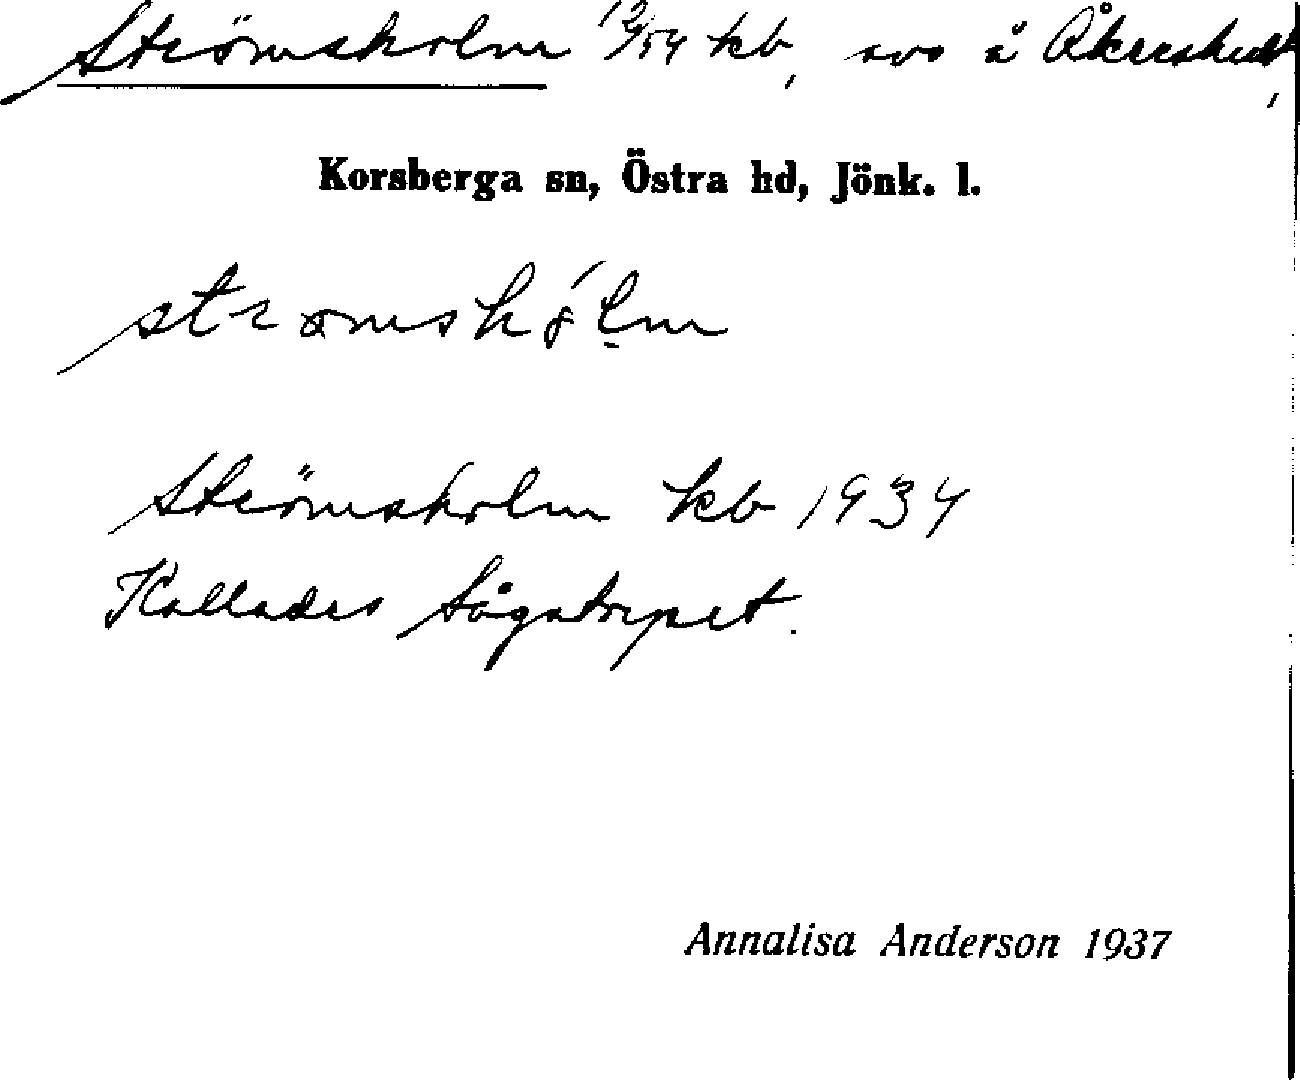 Strömsholm 12/54 kb, avs å Åkershult,
Korsberga sn, Östra hd, Jönk. l.
Strömsholm kb 1934
Kallades Sågatorpet.
Annalisa Anderson 1937